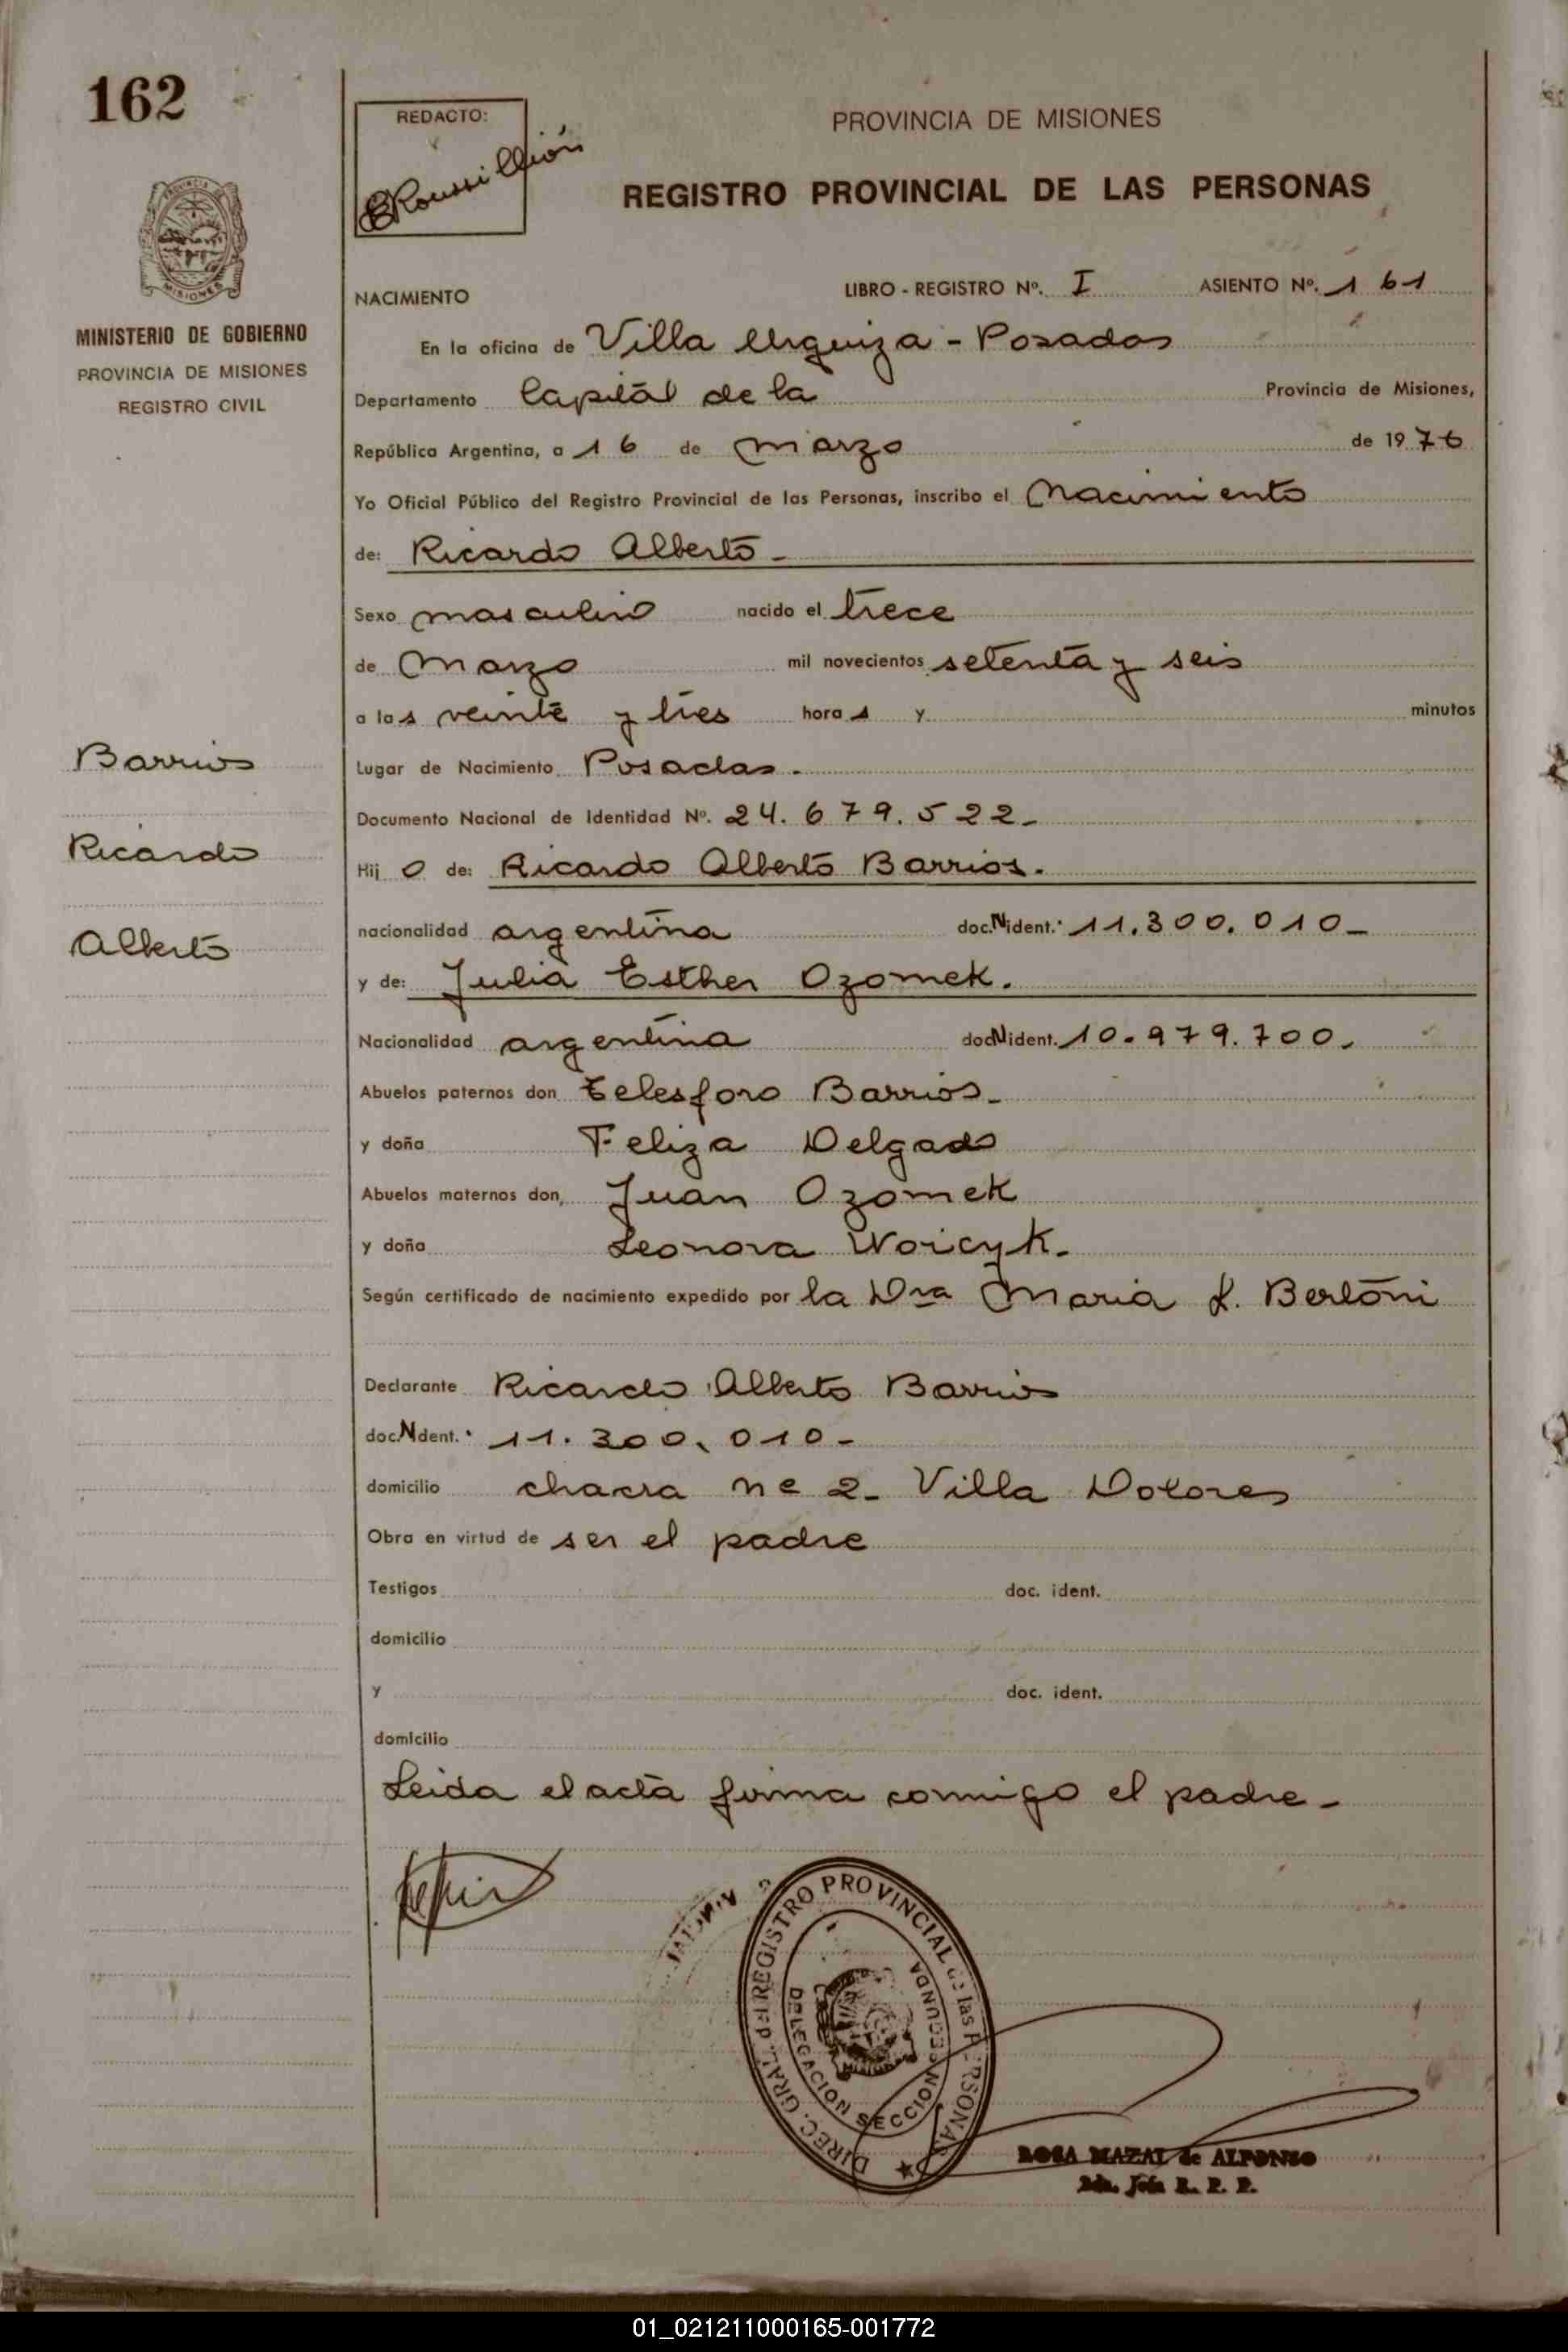 162
REDACTO:
ERoussillión
PROVINCIA DE MISIONES
REGISTRO PROVINCIAL DE LAS PERSONAS
MISIONES
MINISTERIO DE GOBIERNO
PROVINCIA DE MISIONES
REGISTRO CIVIL
NACIMIENTO LIBRO - REGISTRO Nº. I ASIENTO Nº. 161
En la oficina de Villa Urquiza - Posadas
Departamento Capital de la Provincia de Misiones,
República Argentina, a 16 de marzo de 1976
Yo Oficial Público del Registro Provincial de las Personas, inscribo el Nacimiento
de: Ricardo Alberto -
Sexo masculino nacido el trece
de Marzo mil novecientos setenta y seis
a las veinte y tres horas y minutos
Barrios
Lugar de Nacimiento Posadas.
Documento Nacional de Identidad Nº. 24.679.522-
Ricardo
Hijo de: Ricardo Alberto Barrios.
Alberto
nacionalidad argentina doc.N ident. 11.300.010-
y de: Julia Esther Ozomek.
Nacionalidad argentina doc N ident. 10.979.700.
Abuelos paternos don Telesforo Barrios-
y doña Feliza Delgado
Abuelos maternos don, Juan Ozomek
y doña Leonora Woicyk.
Según certificado de nacimiento expedido por la Dra Maria L. Bertoni
Declarante Ricardo Alberto Barrios
doc.N dent. 11.300.010-
domicilio chacra nº 2- Villa Dolores
Obra en virtud de ser el padre
Testigos doc. ident.
domicilio
y doc. ident.
domicilio
Leida el acta firma conmigo el padre-
DIREC. GRAL. del REGISTRO PROVINCIAL de las PERSONAS
DELEGACION SECCION SEGUNDA
ROSA MAZAL de ALFONSO
Jefa R. P. P.
01_021211000165-001772